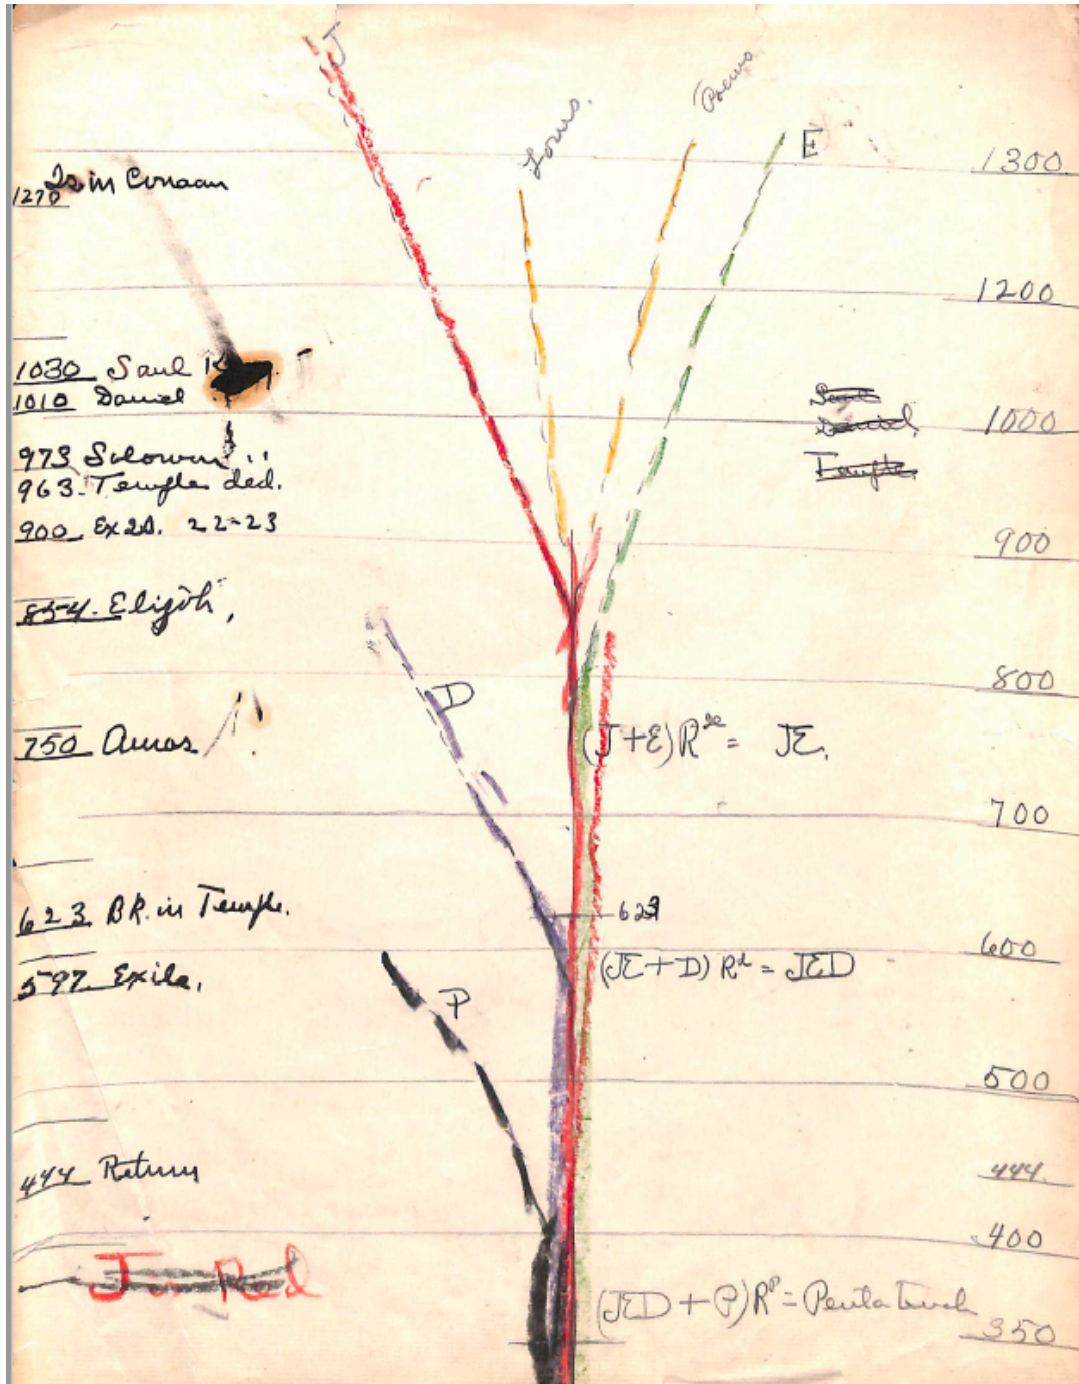 J
Laws.
Poems
E
1300
1270 Is in Canaan
1200
1030 Saul K
1010 David
David
1000
973 Solomon "
Temple
963. Temple ded.
900 Ex 20. 22-23
900
854. Elijah,
800
D
750 Amos
(J+E)R = JE.
700
623 BK. in Temple.
623
600
597 Exile.
(JE+D) Rᵈ = JED
P
500
444 Return
444.
400
J in Red
(JED + P)Rᵖ = Pentateuch
350